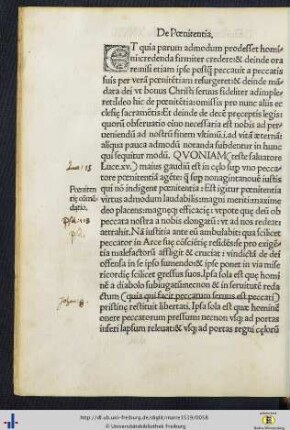 De Pœnitentia,
ET quia parum admodum prodesset homi
ni credenda firmiter credere: & deinde ora
re nisi etiam ipse postq̃ peccauit a peccatis
suis per verā pœnitētiam resurgeret: & deinde mā
data dei vt bonus Christi seruus fideliter adimple
ret: ideo hic de pœnitētia: omissis pro nunc aliis ec
clesię sacramētis: Et deinde de decē pręceptis legis:
quorū obseruatio eius necessaria est nobis ad per
tenendū ad nostrū finem vltimū .i. ad vitā ęternā:
aliqua pauca admodū notanda subdentur in hunc
qui sequitur modū. QVONIAM (teste saluatore
Lucę.xv.) maius gaudiū est in cęlo sup vno pecca
tore pœnitentiā agēte: q̃ sup nonagintanoue iustis
qui nō indigent pœnitentia: Est igitur pœnitentia
Pœniten
tię cōmē
datio.
virtus admodum laudabilis: magni meriti: maxime
deo placens: magnęq; efficacię: vtpote que dei ob
peccata nostra a nobis elongati: vt ad nos redeat
attrahit. Nā iustitia ante eū ambulabit: qua scilicet
peccator in Arce suę cōsciētię residēs pro exigē
tia malefactorū affligit & cruciat: vindictā de dei
offensa in se ipso sumendo: & ipse ponet in via mise
ricordię scilicet gressus suos. Ipsa sola est quę homi
nē a diabolo subiugatū necnon & in seruitutē reda
ctum (quia qui facit peccatum seruus est peccati)
pristinę restituit libertati. Ipsa sola est quæ hominē
onere peccatorum pressum: necnon vsq; ad portas
inferi lapsum releuat: & vsq; ad portas regni cęlorū
http://dl.ub.uni-freiburg.de/diglit/marre1519/0058
© Universitätsbibliothek Freiburg